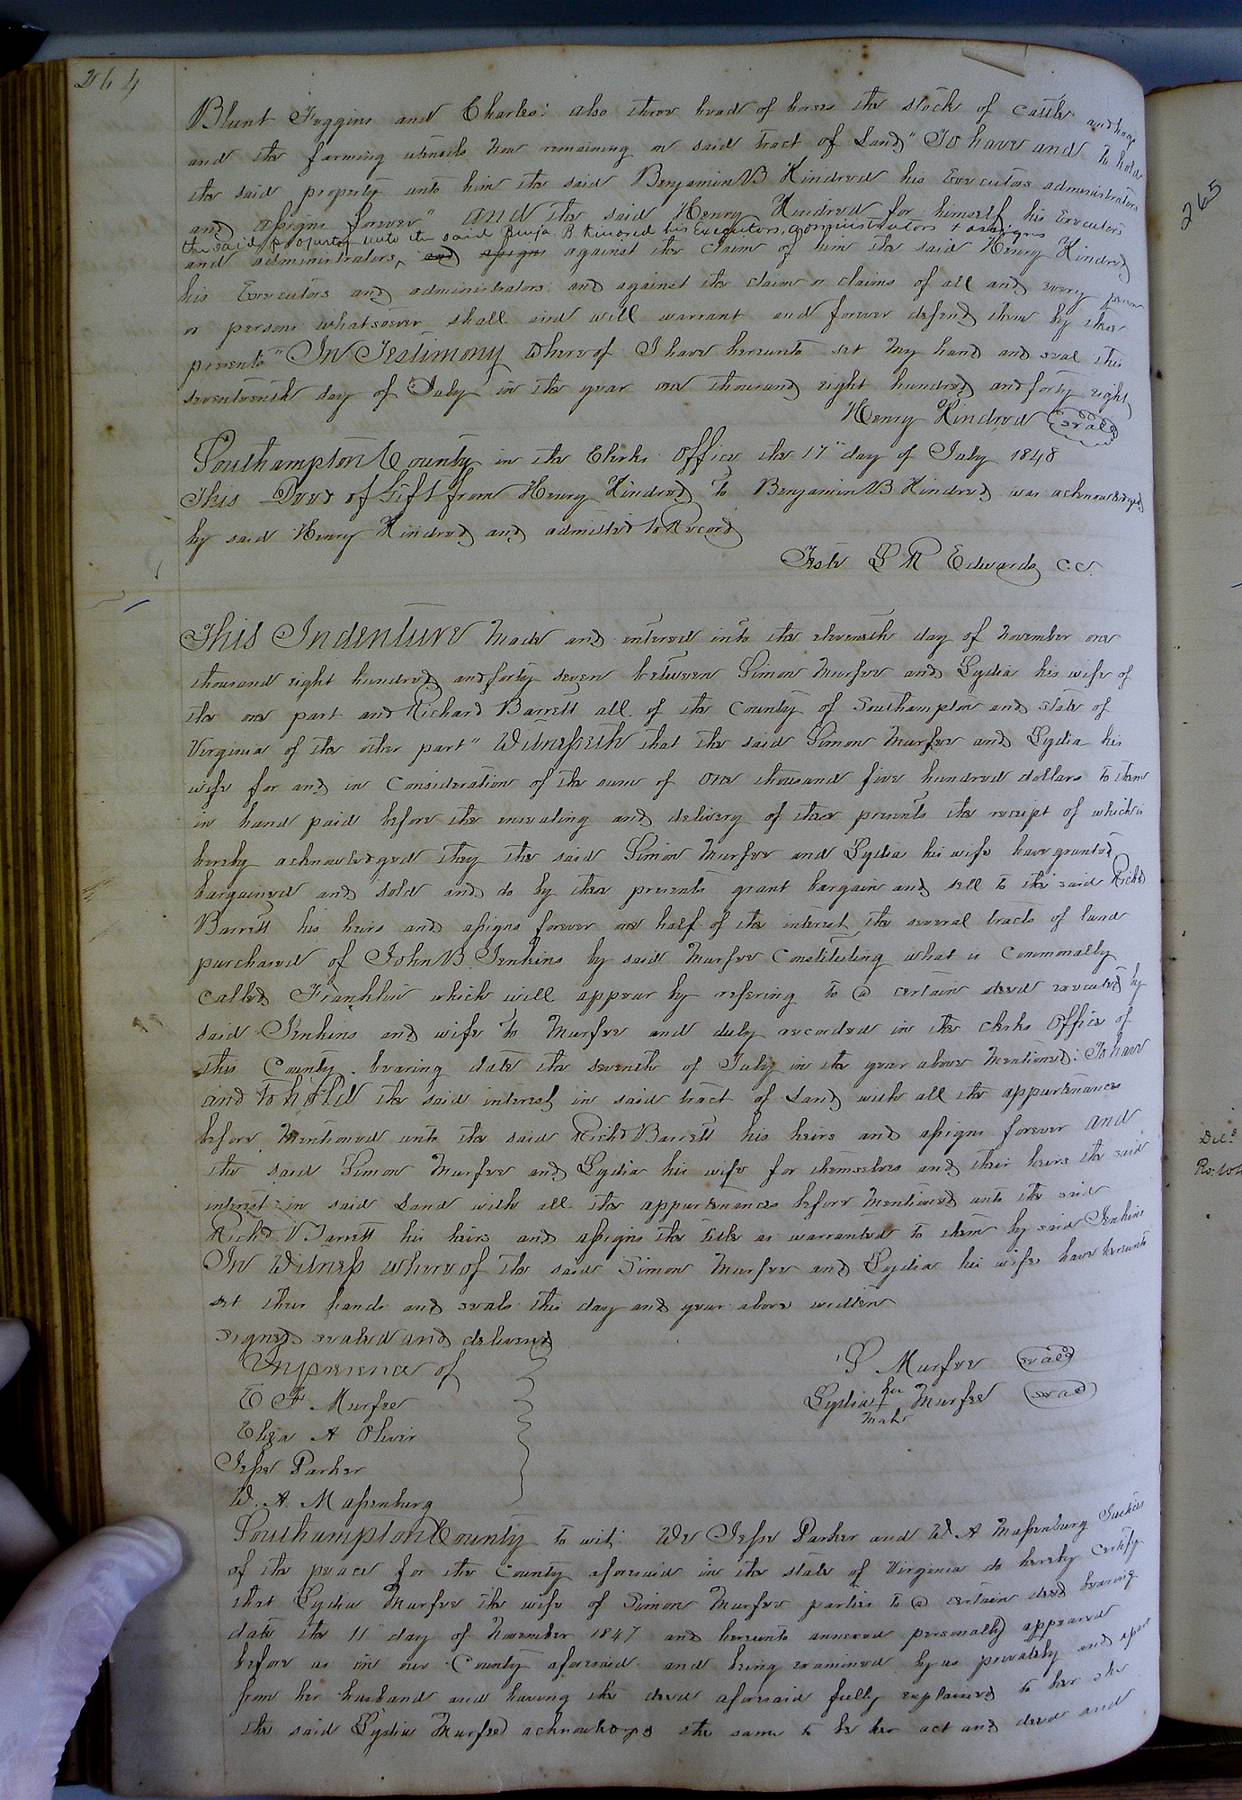 264
Blunt Foggins and Charles: also three head of horses the stock of cattle and hogs
and the farming utensils now remaining on said tract of Land" To have and to hold
the said property unto him the said Benjamin B Kindred his Executors administrators
and assigns forever" And the said Henry Kindred for himself his Executors
the said property unto the said Benja. B. Kindred his Executors, administrators & assigns
and administrators, and assigns against the claim of him the said Henry Kindred
his Executors and administrators and against the claim or claims of all and every person
or persons whatsoever shall and will warrant and forever defend them by these
presents" In Testimony whereof I have hereunto set my hand and seal this
seventeenth day of July in the year one thousand eight hundred and forty eight
Henry Kindred seal
Southampton County in the Clerks Office the 17" day of July 1848
This Deed of Gift from Henry Kindred to Benjamin B Kindred was acknowledged
by said Henry Kindred and admitted to Record
Teste L R Edwards C.C.
This Indenture made and entered into the eleventh day of November one
thousand eight hundred and forty seven between Simon Murfee and Lydia his wife of
the one part and Richard Barrett all of the County of Southampton and state of
Virginia of the other part" Witnesseth that the said Simon Murfee and Lydia his
wife for and in Consideration of the sum of one thousand five hundred dollars to them
in hand paid before the ensealing and delivery of these presents the receipt of which is
hereby acknowledged they the said Simon Murfee and Lydia his wife have granted
bargained and sold and do by these presents grant bargain and sell to the said Richd
Barrett his heirs and assigns forever one half of the interest the several tracts of land
purchased of John B. Jenkins by said Murfee Constituting what is Commonally
called Franklin which will appear by refering to a certain deed executed by
said Jenkins and wife to Murfee and duly recorded in the clerks Office of
this County bearing date the seventh of July in the year above mentioned: To have
and to hold the said interest in said tract of Land with all the appurtenances
before mentioned unto the said Richd Barrett his heirs and assigns forever and
the said Simon Murfee and Lydia his wife for themselves and their heirs the said
interest in said Land with all the appurtenances before mentioned unto the said
Richd Barrett his heirs and assigns the title as warranted to them by said Jenkins
In Witness whereof the said Simon Murfee and Lydia his wife have hereunto
set their hands and seals this day and year above written
signed sealed and delivered
In presence of
S Murfee seal
E F Murfee
Lydia her mark Murfee seal
Eliza A Oliver
Jesse Parker
W. A. Massenburg
Southampton County to wit: We Jesse Parker and W A Massenburg Justices
of the peace for the County aforesaid in the state of Virginia do hereby certify
that Lydia Murfee the wife of Simon Murfee parties to a certain deed bearing
date the 11" day of November 1847 and hereunto annexed personally appeared
before us in our County aforesaid and being examined by us privately and apart
from her husband and having the deed aforesaid fully explained to her she
the said Lydia Murfee acknowledged the same to be her act and deed and
265